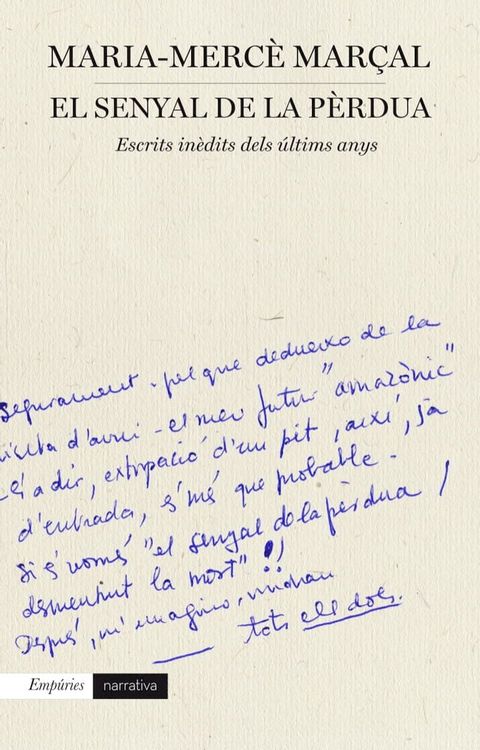 MARIA-MERCÈ MARÇAL
EL SENYAL DE LA PÈRDUA
Escrits inèdits dels últims anys
Segurament - pel que dedueixo de la
visita d'avui - el meu futur "amazònic"
- és a dir, extirpació d'un pit, així, ja
d'entrada, és més que probable -
Si és només "el senyal de la pèrdua /
desmentint la mort"!!
Després, m'imagino, vindran
tots els dols.
Empúries narrativa